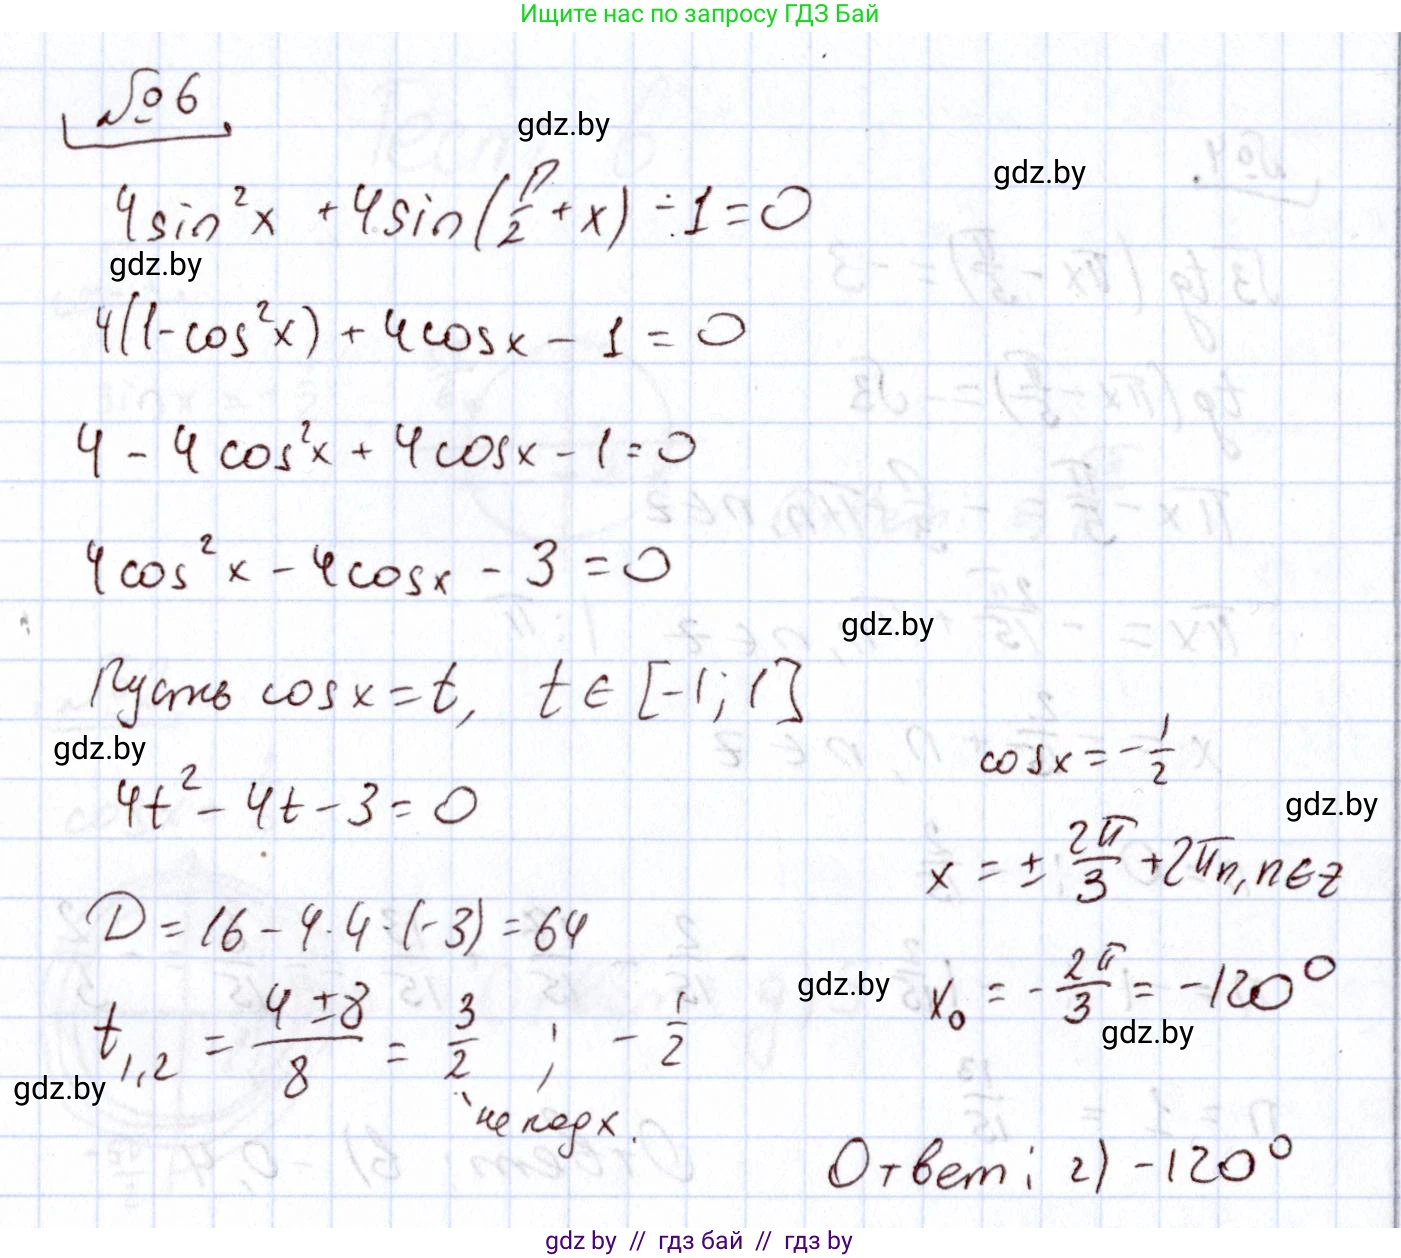 Ищите нас по запросу ГДЗ Бай
№ 6
gdz.by
gdz.by
4 sin²x + 4 sin(π/2 + x) - 1 = 0
gdz.by
4(1-cos²x) + 4cosx - 1 = 0
4 - 4cos²x + 4cosx - 1 = 0
4cos²x - 4cosx - 3 = 0
gdz.by
Пусть cosx = t, t ∈ [-1; 1]
gdz.by
4t² - 4t - 3 = 0
D = 16 - 4·4·(-3) = 64
t₁,₂ = (4 ± 8)/8 = 3/2 ; - 1/2
gdz.by
не подх.
cosx = - 1/2
gdz.by
x = ± 2π/3 + 2πn, n∈Z
gdz.by
x₀ = - 2π/3 = -120°
gdz.by
Ответ: г) -120°
gdz.by // гдз бай // гдз by